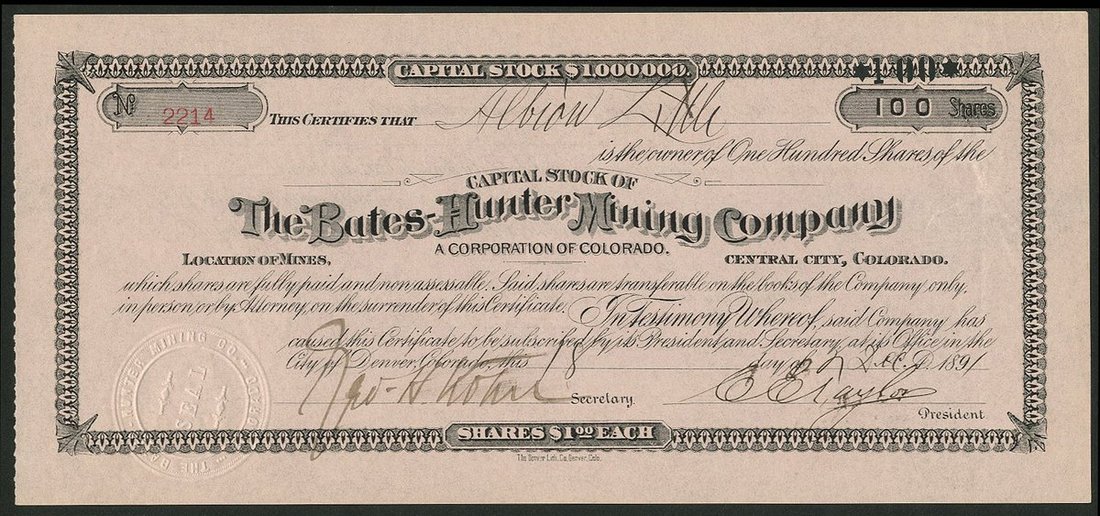 CAPITAL STOCK $1000000.
*100*
No 2214
100 Shares
THIS CERTIFIES THAT Albion Little
is the owner of One Hundred Shares of the
CAPITAL STOCK OF
The Bates-Hunter Mining Company
A CORPORATION OF COLORADO.
LOCATION OF MINES, CENTRAL CITY, COLORADO.
which shares are fully paid and non assessable. Said shares are transferable on the books of the Company only,
in person, or by Attorney, on the surrender of this Certificate. In Testimony Whereof, said Company has
caused this Certificate to be subscribed by its President and Secretary, at its Office in the
City of Denver, Colorado, this 18 day of Dec 1891
Secretary. E E Taylor
President
HUNTER MINING CO.
SEAL
THE
SHARES $1.00 EACH
The Denver Lith. Co., Denver, Colo.